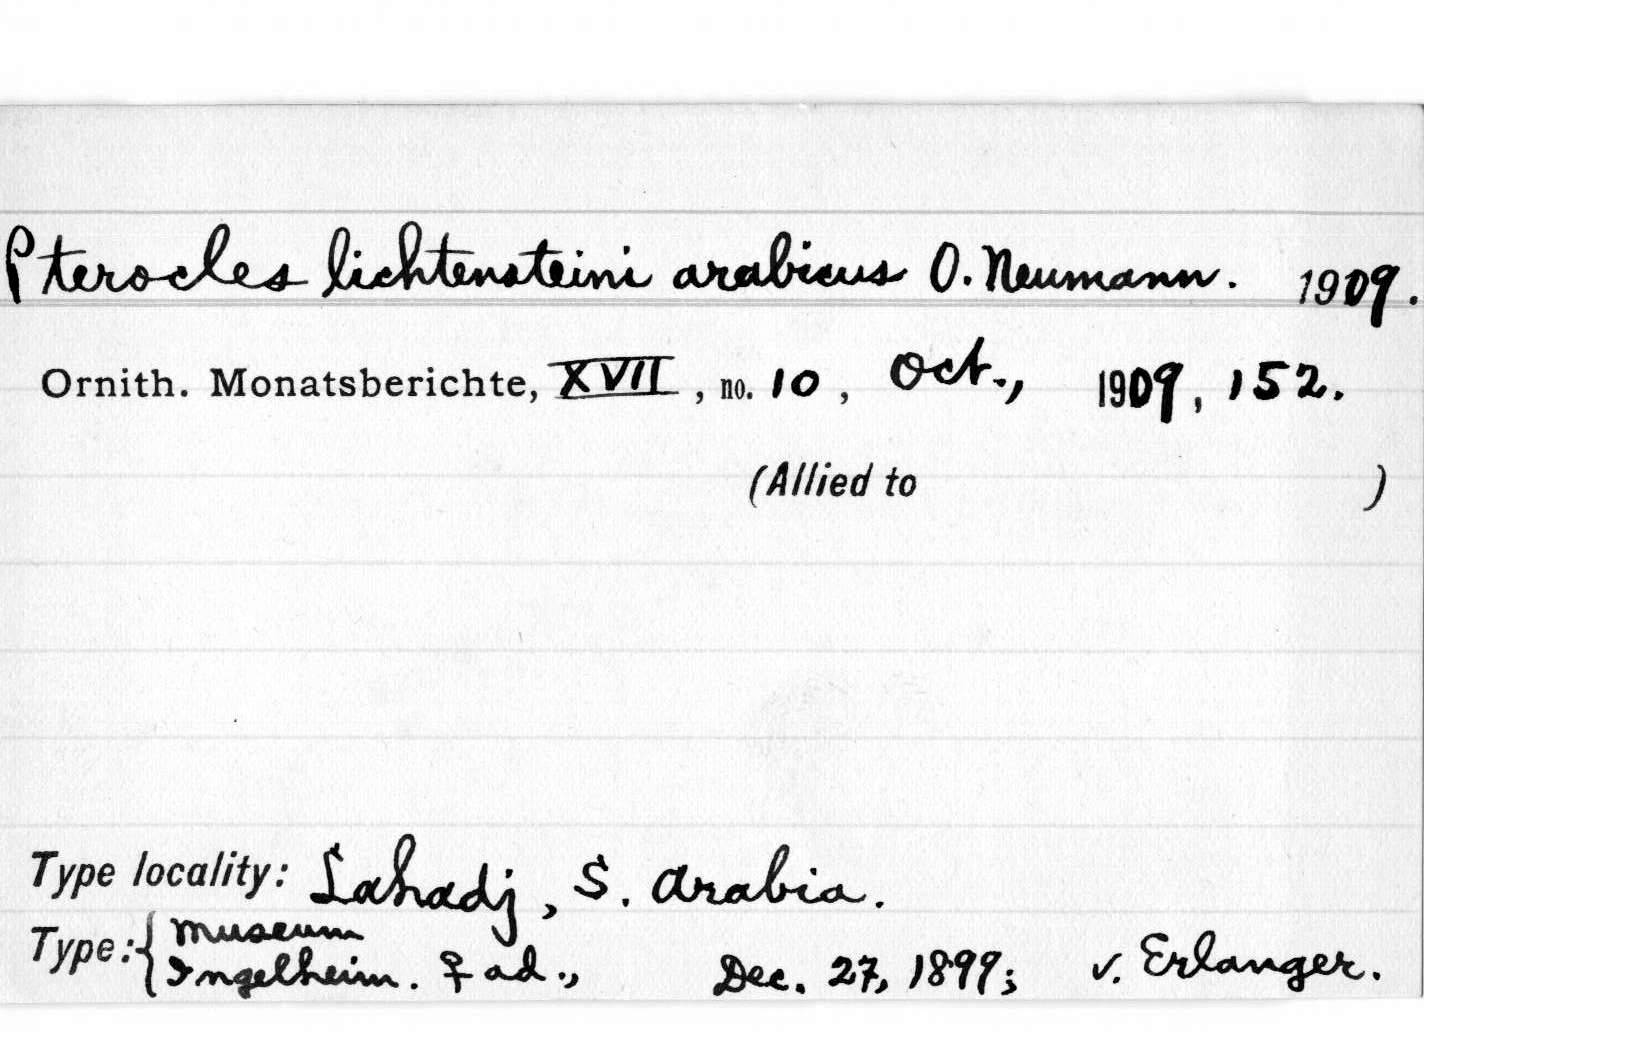 Pterocles lichtensteini arabicus O. Neumann. 1909.
Ornith. Monatsberichte, XVII, no. 10, Oct., 1909, 152.
(Allied to )
Type locality: Lahadj, S. Arabia.
Type: { Museum
Ingelheim. ♀ ad., Dec. 27, 1899; v. Erlanger.